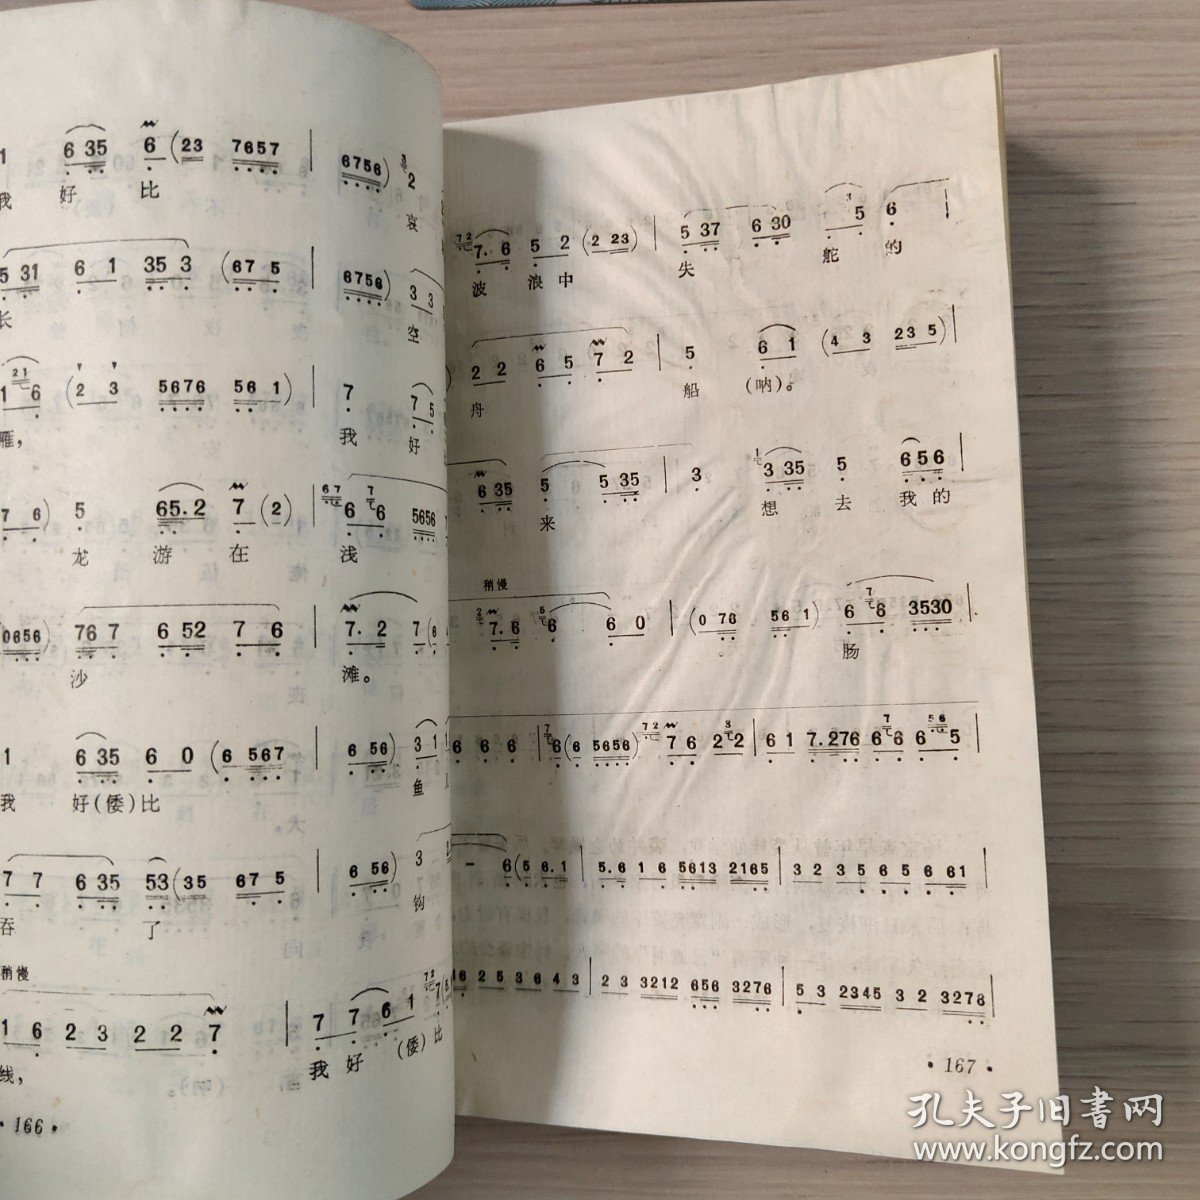 1 6 35 6 (23 7657 | 6756) 2
我 好 比 哀
5 31 6 1 35 3 (67 5 | 6756) 3 3
长 空
1 6 (2 3 5676 56 1) | 7 7 5
雁， 我 好
7 6) 5 65.2 7 (2) | 6 6 5656
龙 游 在 浅
0656) 76 7 6 52 7 6 | 7. 2 7 (6
沙 滩。
1 6 35 6 0 (6 567 | 6 56) 3 1
我 好(倭)比 鱼
7 7 6 35 53 (35 67 5 | 6 56) 3
吞 了 钩
稍慢
1 6 2 3 2 2 7 | 7 7 6 1 7
线， 我 好 (倭) 比
· 166 ·
7. 6 5 2 (2 23) | 5 37 6 30 5 6
波 浪中 失 舵 的
2 2 6 5 7 2 5 6 1 (4 3 23 5) |
舟 船 (呐)。
6 35 5 5 35 | 3 3 35 5 6 5 6 |
来 想 去 我的
稍慢
7. 6 6 6 0 | (0 76 56 1) 6 6 3530 |
肠
6 6 6 | 6 (6 5656) 7 6 2 2 | 6 1 7.276 6 6 6 5 |
- 6 (5 6.1 | 5.6 1 6 5613 2165 | 3 2 3 5 6 5 6 61 |
16 2 5 3 6 4 3 | 2 3 3212 656 3276 | 5 3 2345 3 2 3276 |
· 167 ·
孔夫子旧書网
www.kongfz.com